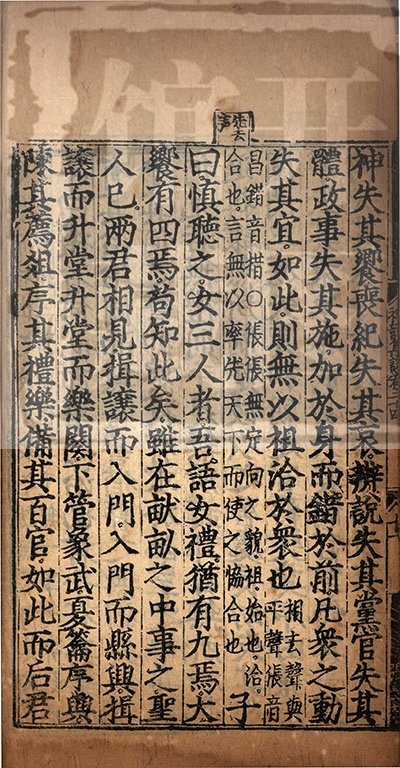 神失其饗喪紀失其哀。辨說失其黨官失其
體政事失其施。加於身而錯於前。凡衆之動
失其宜。如此。則無以祖洽於衆也
相去聲與
平聲倀音
昌錯音措○倀倀無定向之貌。祖。始也。洽。
合也。言無以率先天下而使之協合也
子
曰。慎聽之。女三人者。吾語女禮猶有九焉。大
饗有四焉。苟知此矣。雖在畎畝之中事之聖
人已。兩君相見揖讓而入門。入門而縣興。揖
讓而升堂升堂而樂闋下管象武夏籥序興
陳其薦俎序其禮樂備其百官如此而后君